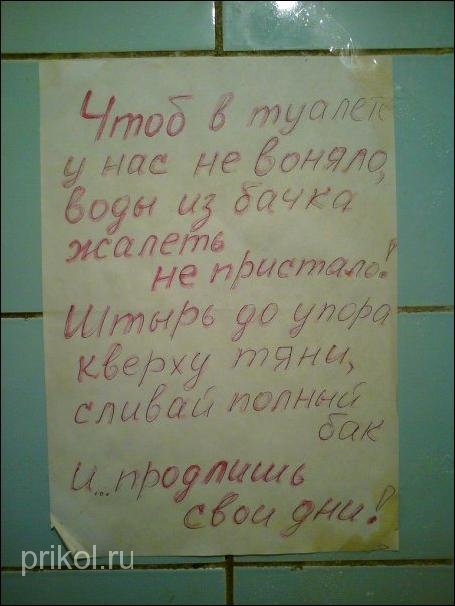 Чтоб в туалете
у нас не воняло,
воды из бачка
жалеть
не пристало!
Штырь до упора
кверху тяни,
сливай полный
бак
и...продлишь
свои дни!
prikol.ru